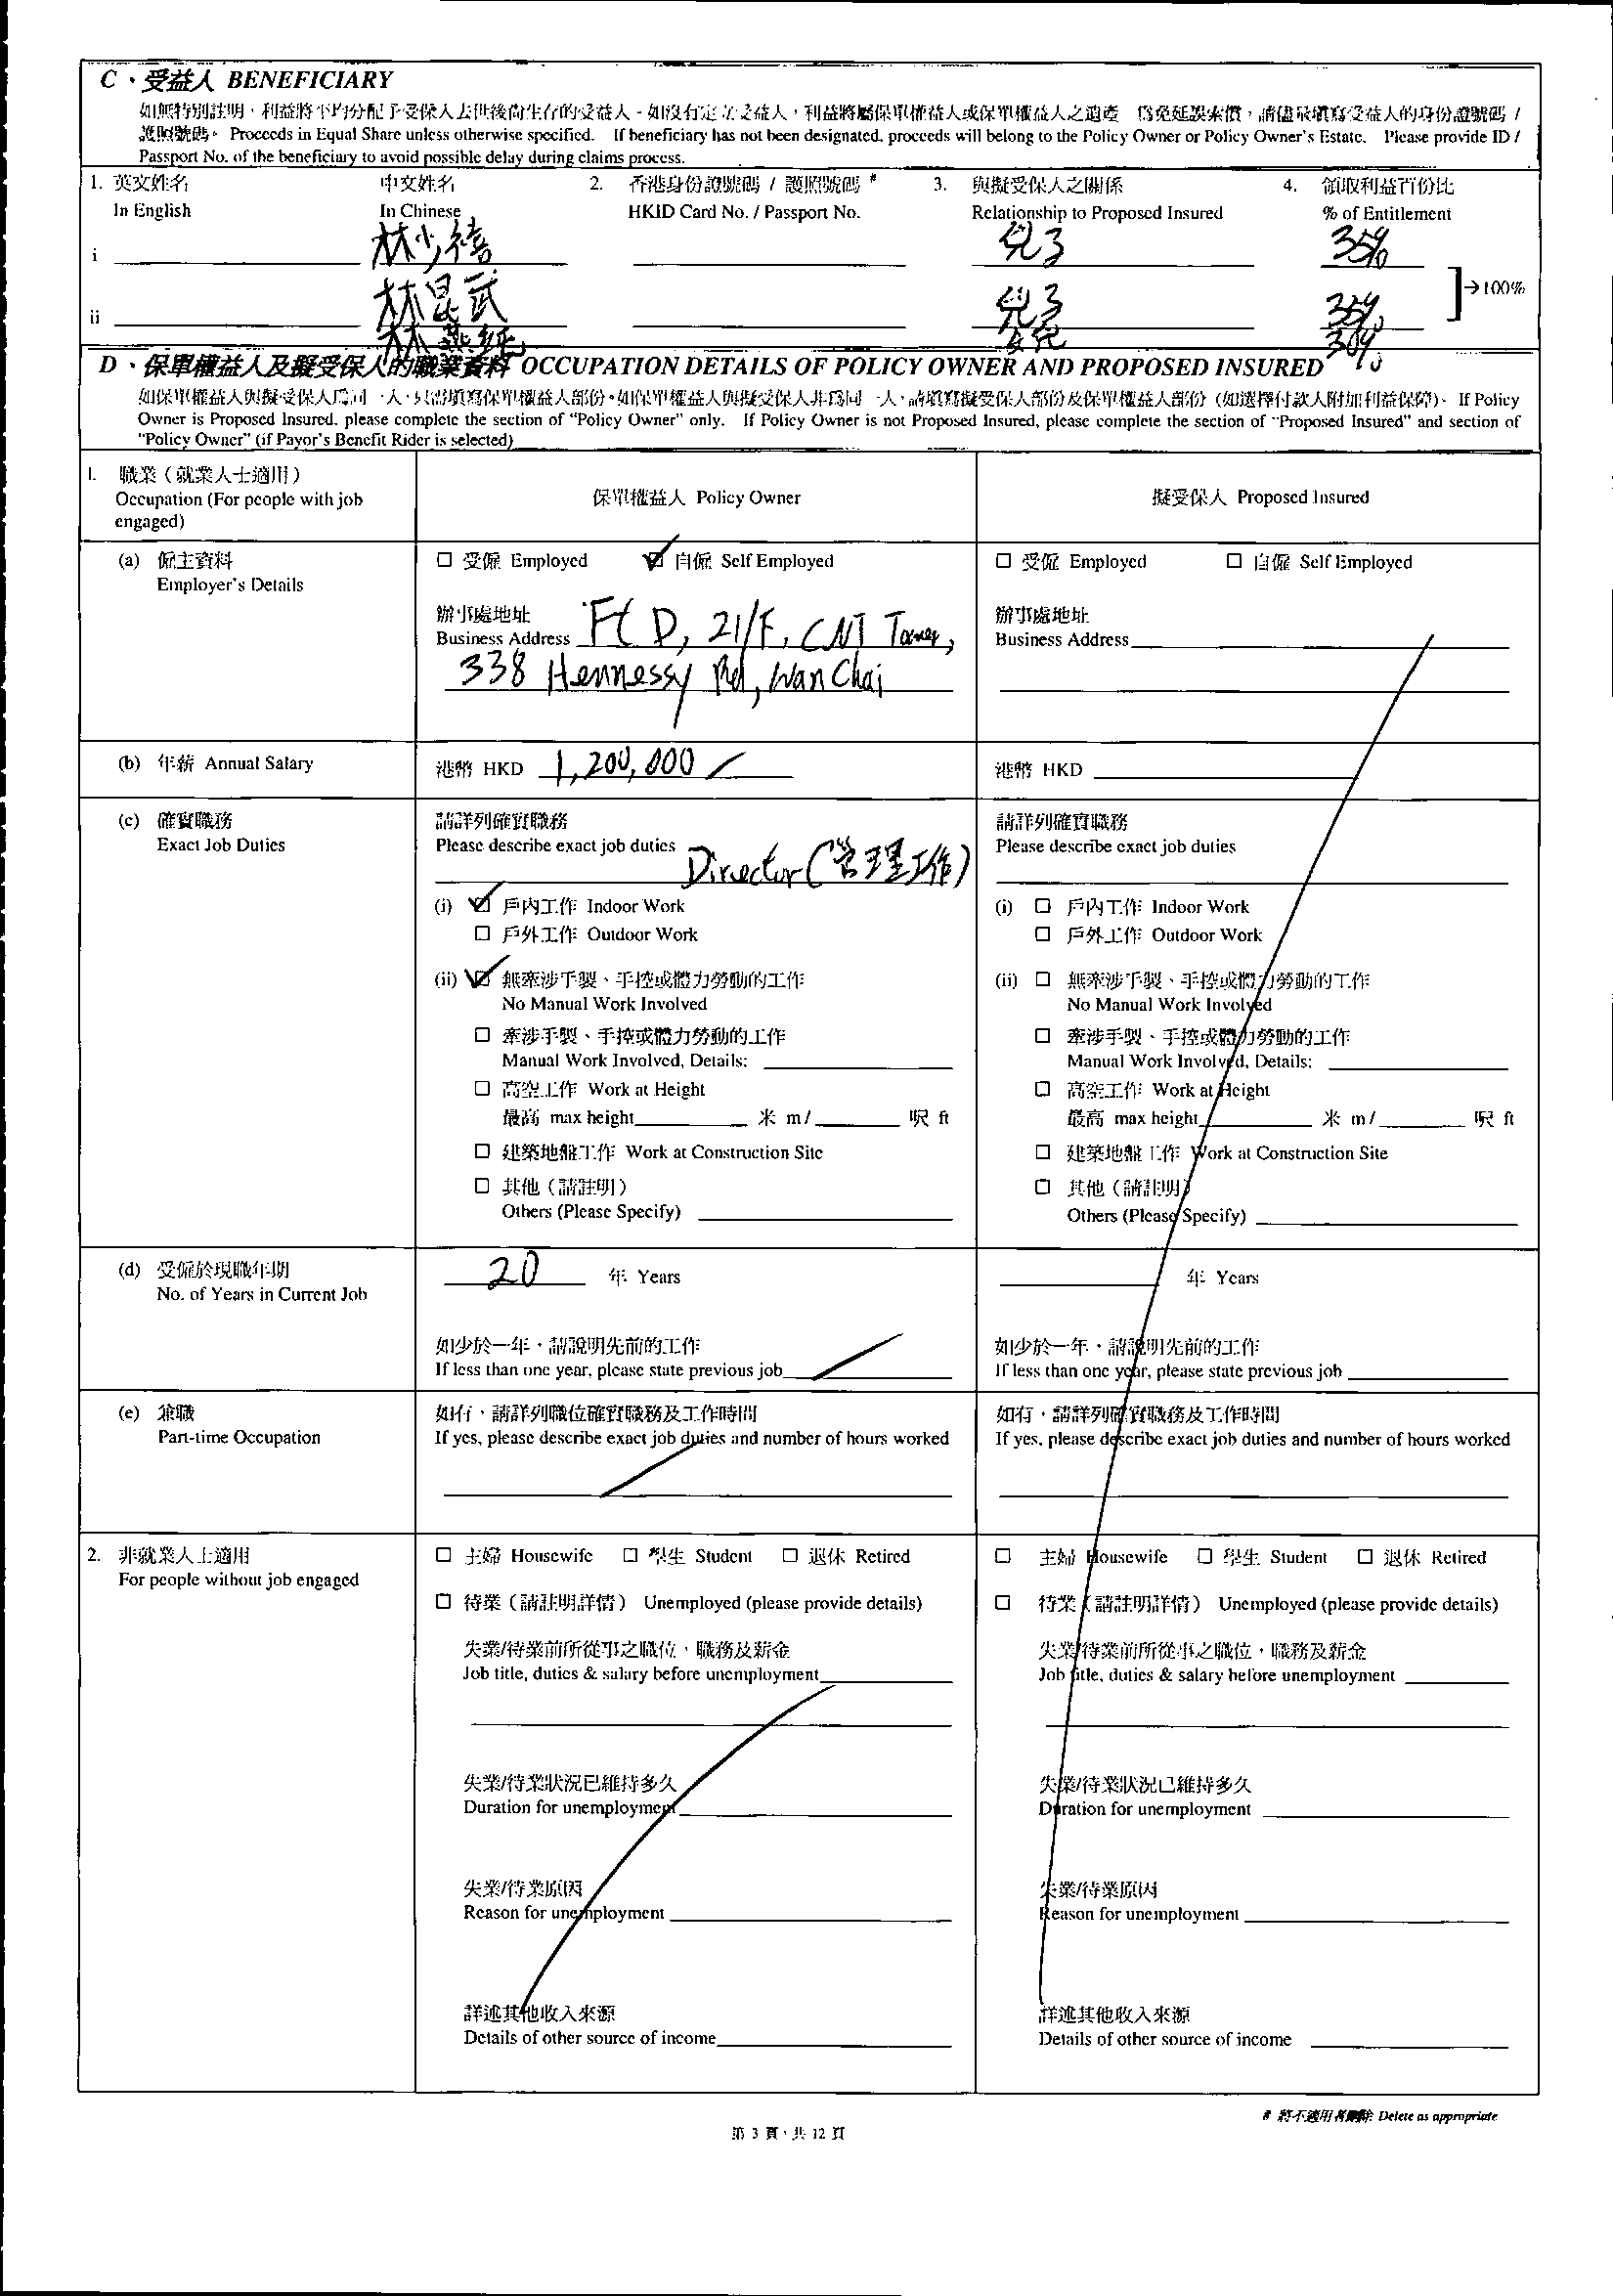 C、受益人 BENEFICIARY
如無特別註明，利益將平均分配予受保人去世後尚生存的受益人。如沒有定立受益人，利益將屬保單權益人或保單權益人之遺產。為免延誤索償，請儘量填寫受益人的身份證號碼 /
護照號碼。 Proceeds in Equal Share unless otherwise specified. If beneficiary has not been designated, proceeds will belong to the Policy Owner or Policy Owner's Estate. Please provide ID /
Passport No. of the beneficiary to avoid possible delay during claims process.
1. 英文姓名 中文姓名 2. 香港身份證號碼 / 護照號碼 # 3. 與擬受保人之關係 4. 領取利益百份比
In English In Chinese HKID Card No. / Passport No. Relationship to Proposed Insured % of Entitlement
i 林少禧 兒子 35%
→100%
ii 林昆武 兒子 35%
林燕 女兒 30%
D、保單權益人及擬受保人的職業資料 OCCUPATION DETAILS OF POLICY OWNER AND PROPOSED INSURED
如保單權益人與擬受保人為同一人，只需填寫保單權益人部份。如保單權益人與擬受保人非為同一人，請填寫擬受保人部份及保單權益人部份 (如選擇付款人附加利益保障)。 If Policy
Owner is Proposed Insured, please complete the section of "Policy Owner" only. If Policy Owner is not Proposed Insured, please complete the section of "Proposed Insured" and section of
"Policy Owner" (if Payor's Benefit Rider is selected)
1. 職業（就業人士適用）
Occupation (For people with job
engaged)
保單權益人 Policy Owner 擬受保人 Proposed Insured
(a) 僱主資料
Employer's Details
受僱 Employed 自僱 Self Employed
辦事處地址
Business Address Ft D, 21/F, CNT Tower,
338 Hennessy Rd, Wan Chai
受僱 Employed 自僱 Self Employed
辦事處地址
Business Address
(b) 年薪 Annual Salary 港幣 HKD 1,200,000 港幣 HKD
(c) 確實職務
Exact Job Duties
請詳列確實職務
Please describe exact job duties
Director (管理工作)
(i) 戶內工作 Indoor Work
戶外工作 Outdoor Work
(ii) 無牽涉手製、手控或體力勞動的工作
No Manual Work Involved
牽涉手製、手控或體力勞動的工作
Manual Work Involved, Details:
高空工作 Work at Height
最高 max height 米 m/ 呎 ft
建築地盤工作 Work at Construction Site
其他（請註明）
Others (Please Specify)
請詳列確實職務
Please describe exact job duties
(i) 戶內工作 Indoor Work
戶外工作 Outdoor Work
(ii) 無牽涉手製、手控或體力勞動的工作
No Manual Work Involved
牽涉手製、手控或體力勞動的工作
Manual Work Involved, Details:
高空工作 Work at Height
最高 max height 米 m/ 呎 ft
建築地盤工作 Work at Construction Site
其他（請註明）
Others (Please Specify)
(d) 受僱於現職年期
No. of Years in Current Job
20 年 Years
如少於一年，請說明先前的工作
If less than one year, please state previous job
年 Years
如少於一年，請說明先前的工作
If less than one year, please state previous job
(e) 兼職
Part-time Occupation
如有，請詳列職位確實職務及工作時間
If yes, please describe exact job duties and number of hours worked
如有，請詳列確實職務及工作時間
If yes, please describe exact job duties and number of hours worked
2. 非就業人士適用
For people without job engaged
主婦 Housewife 學生 Student 退休 Retired
待業（請註明詳情） Unemployed (please provide details)
失業/待業前所從事之職位，職務及薪金
Job title, duties & salary before unemployment
失業/待業狀況已維持多久
Duration for unemployment
失業/待業原因
Reason for unemployment
詳述其他收入來源
Details of other source of income
主婦 Housewife 學生 Student 退休 Retired
待業（請註明詳情） Unemployed (please provide details)
失業/待業前所從事之職位，職務及薪金
Job title, duties & salary before unemployment
失業/待業狀況已維持多久
Duration for unemployment
失業/待業原因
Reason for unemployment
詳述其他收入來源
Details of other source of income
# 將不適用者刪除 Delete as appropriate
第 3 頁，共 12 頁